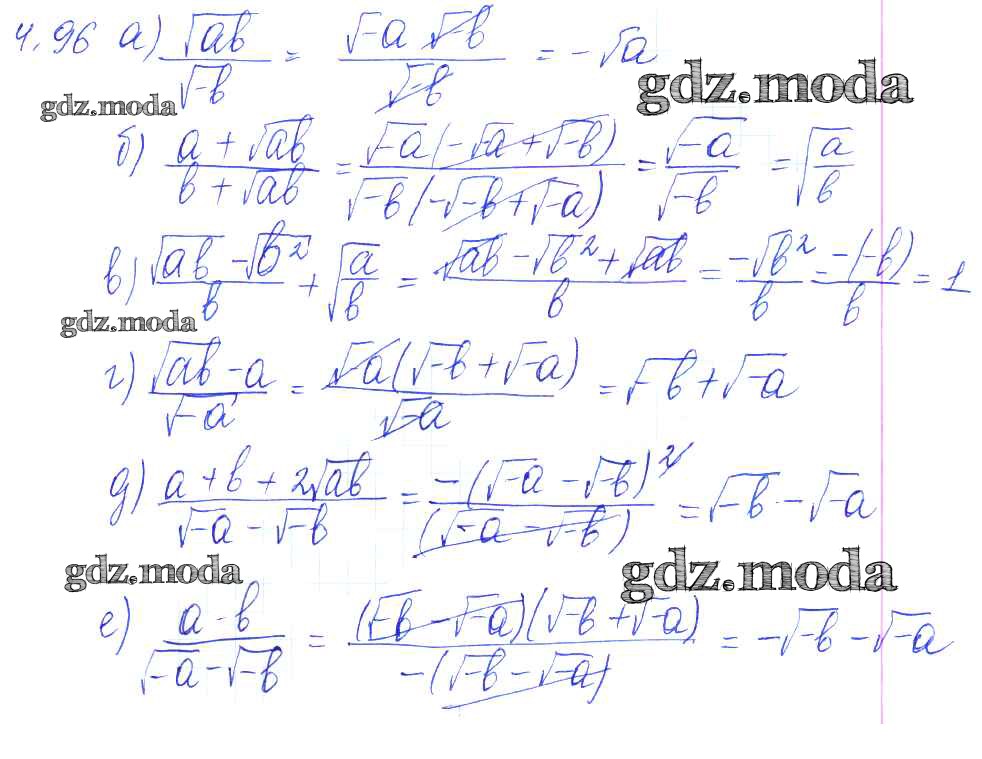 4.96 а) √ab / √-b = √-a √-b / √-b = -√a
gdz.moda gdz.moda
б) a + √ab / b + √ab = √-a(-√-a + √-b) / √-b(-√-b + √-a) = √-a / √-b = √a/b
в) √ab - √b² / b + √a/b = √ab - √b² + √ab / b = -√b² / b = -(-b) / b = 1
gdz.moda
г) √ab - a / √-a = √-a(√-b + √-a) / √-a = √-b + √-a
д) a + b + 2√ab / √-a - √-b = -(√-a - √-b)² / (√-a - √-b) = √-b - √-a
gdz.moda gdz.moda
е) a - b / √-a - √-b = (√-b - √-a)(√-b + √-a) / -(√-b - √-a) = -√-b - √-a